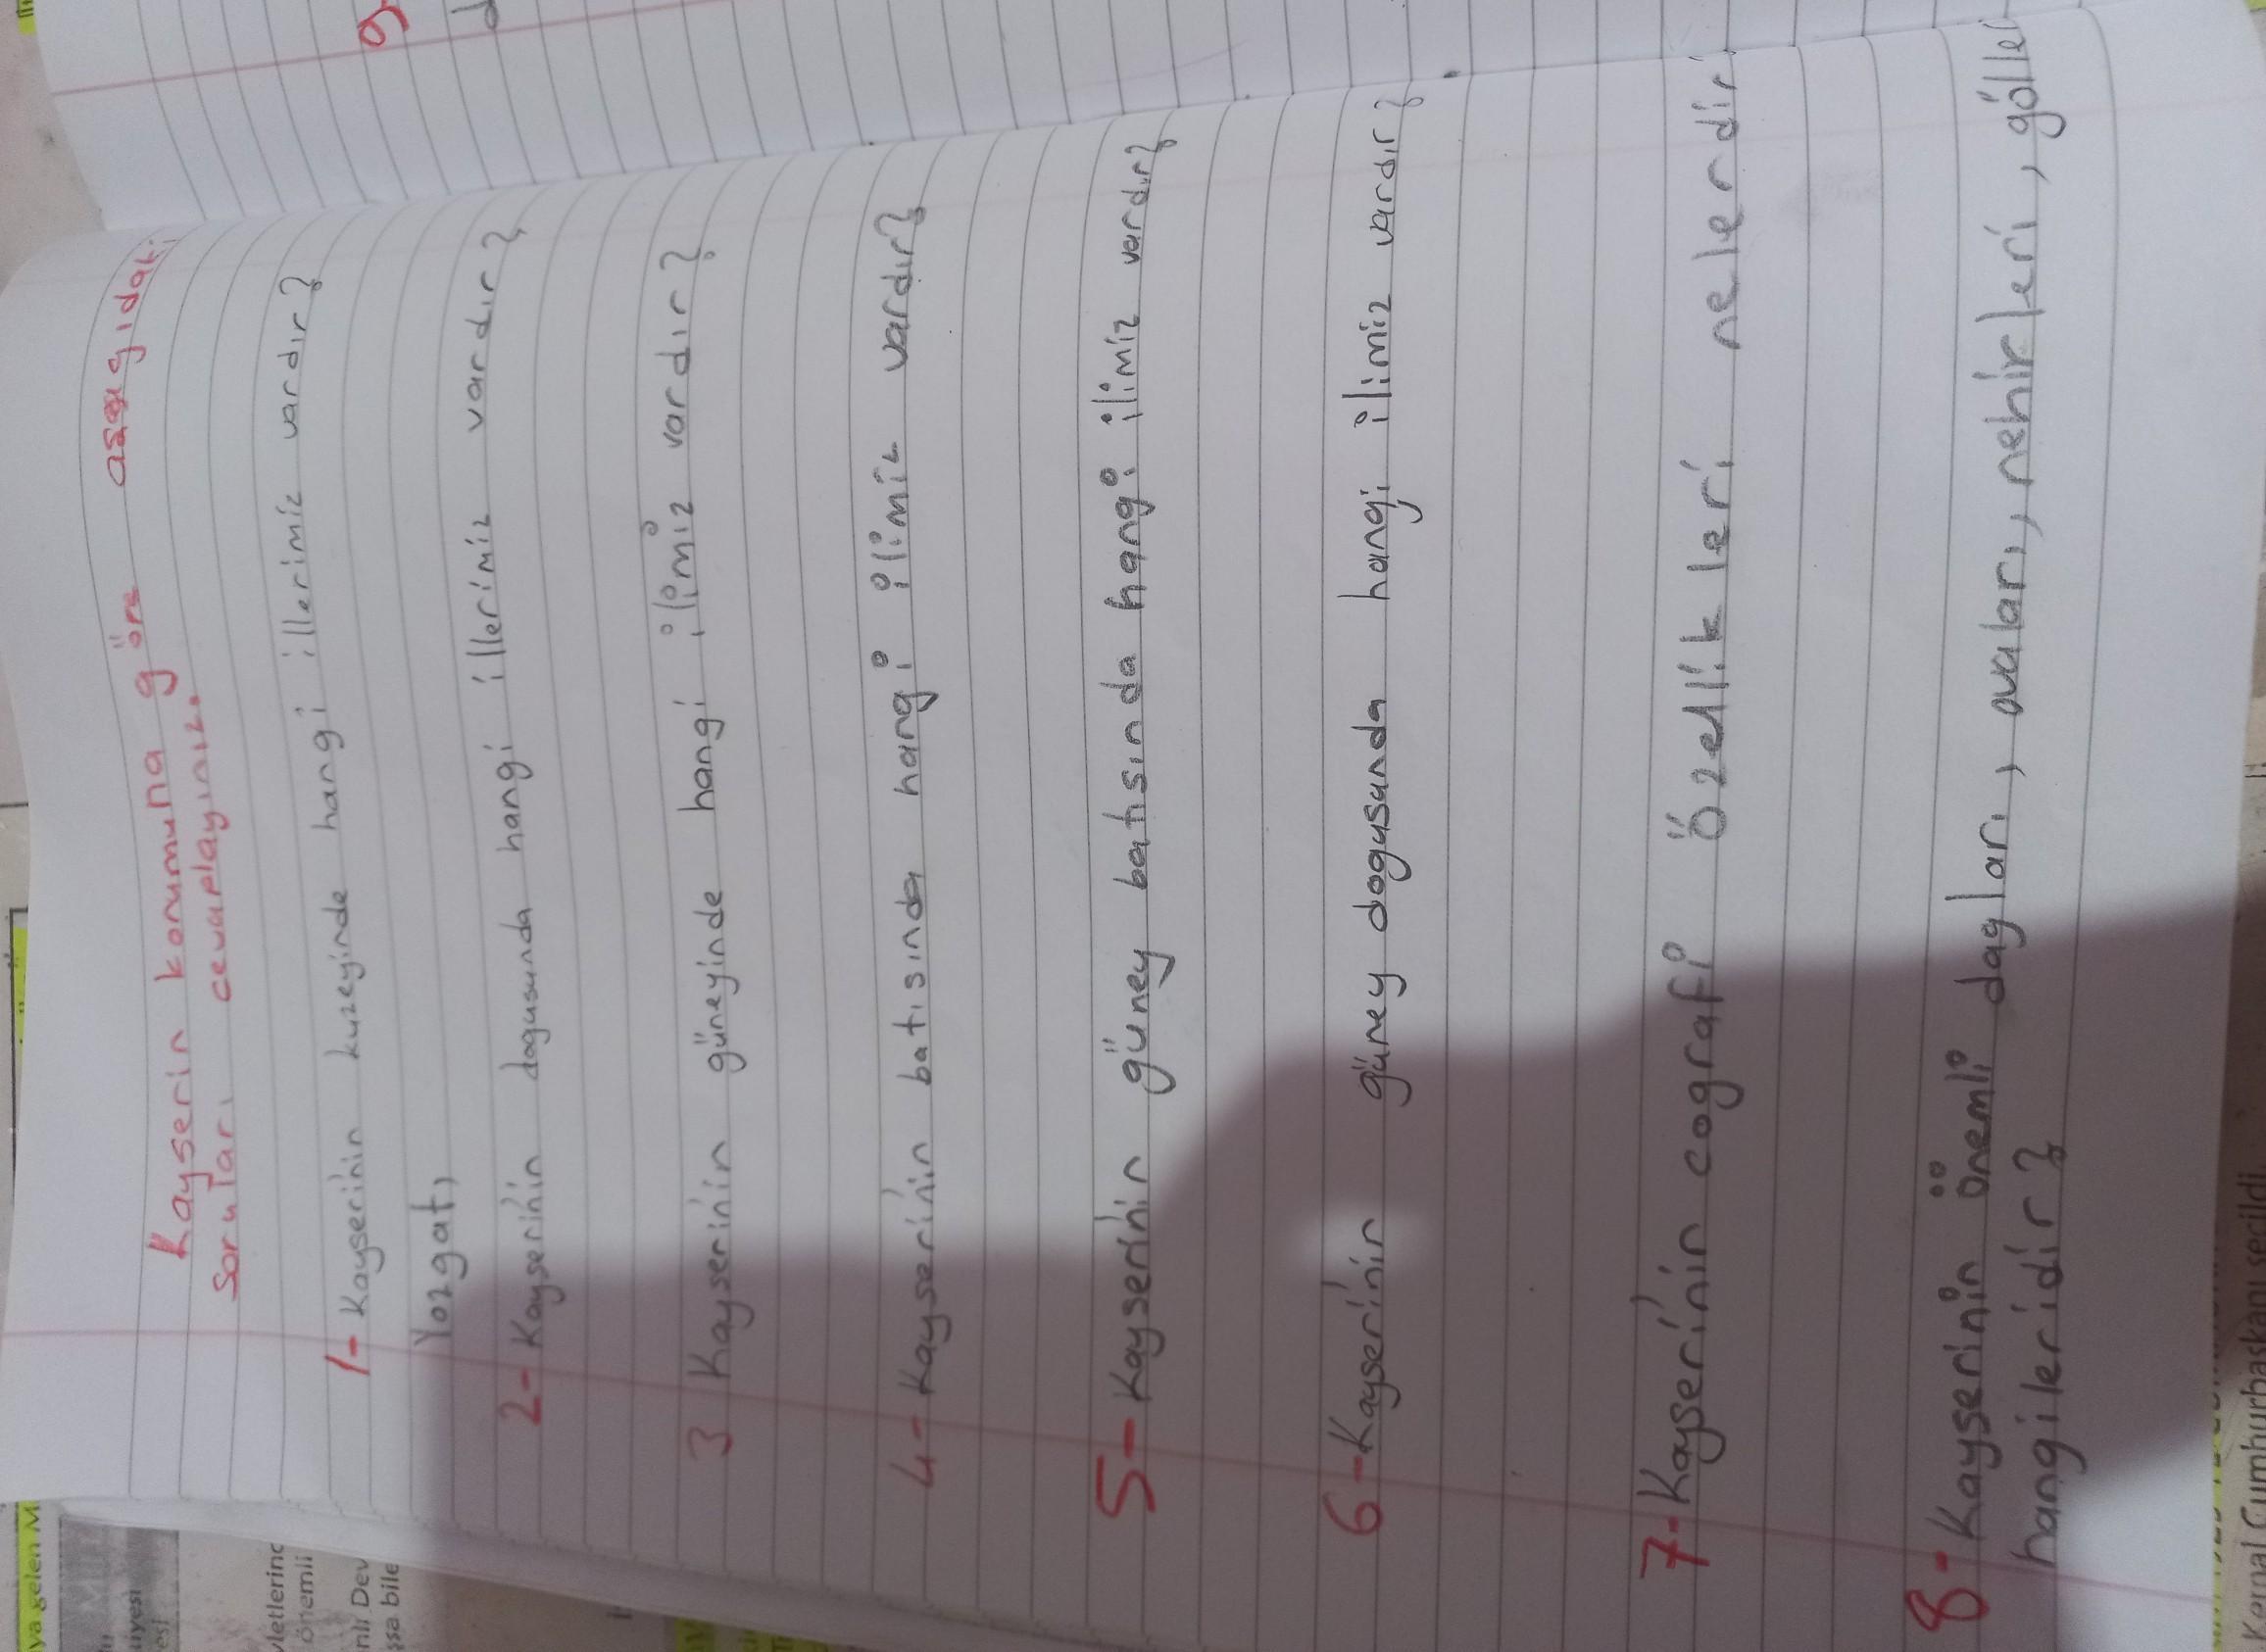 Kayserin konumuna göre asagıdaki
soruları cevaplayınız.
1- Kayserinin kuzeyinde hangi illerimiz vardır?
Yozgat,
2- Kayserinin dogusunda hangi illerimiz vardır?
3 Kayserinin güneyinde hangi ilimiz vardır?
4- Kayserinin batısında hangi ilimiz vardır?
5- Kayserinin güney batısında hangi ilimiz vardır?
6- Kayserinin güney dogusunda hangi ilimiz vardır?
7- Kayserinin cografi özellikleri nelerdir
8- Kayserinin önemli dagları, ovaları, nehirleri, gölleri
hangileridir?
9-
ya gelen M
letlerinc
önemli
nli Dev
ssa bile
Kemal Cumhurbaşkanı seçildi